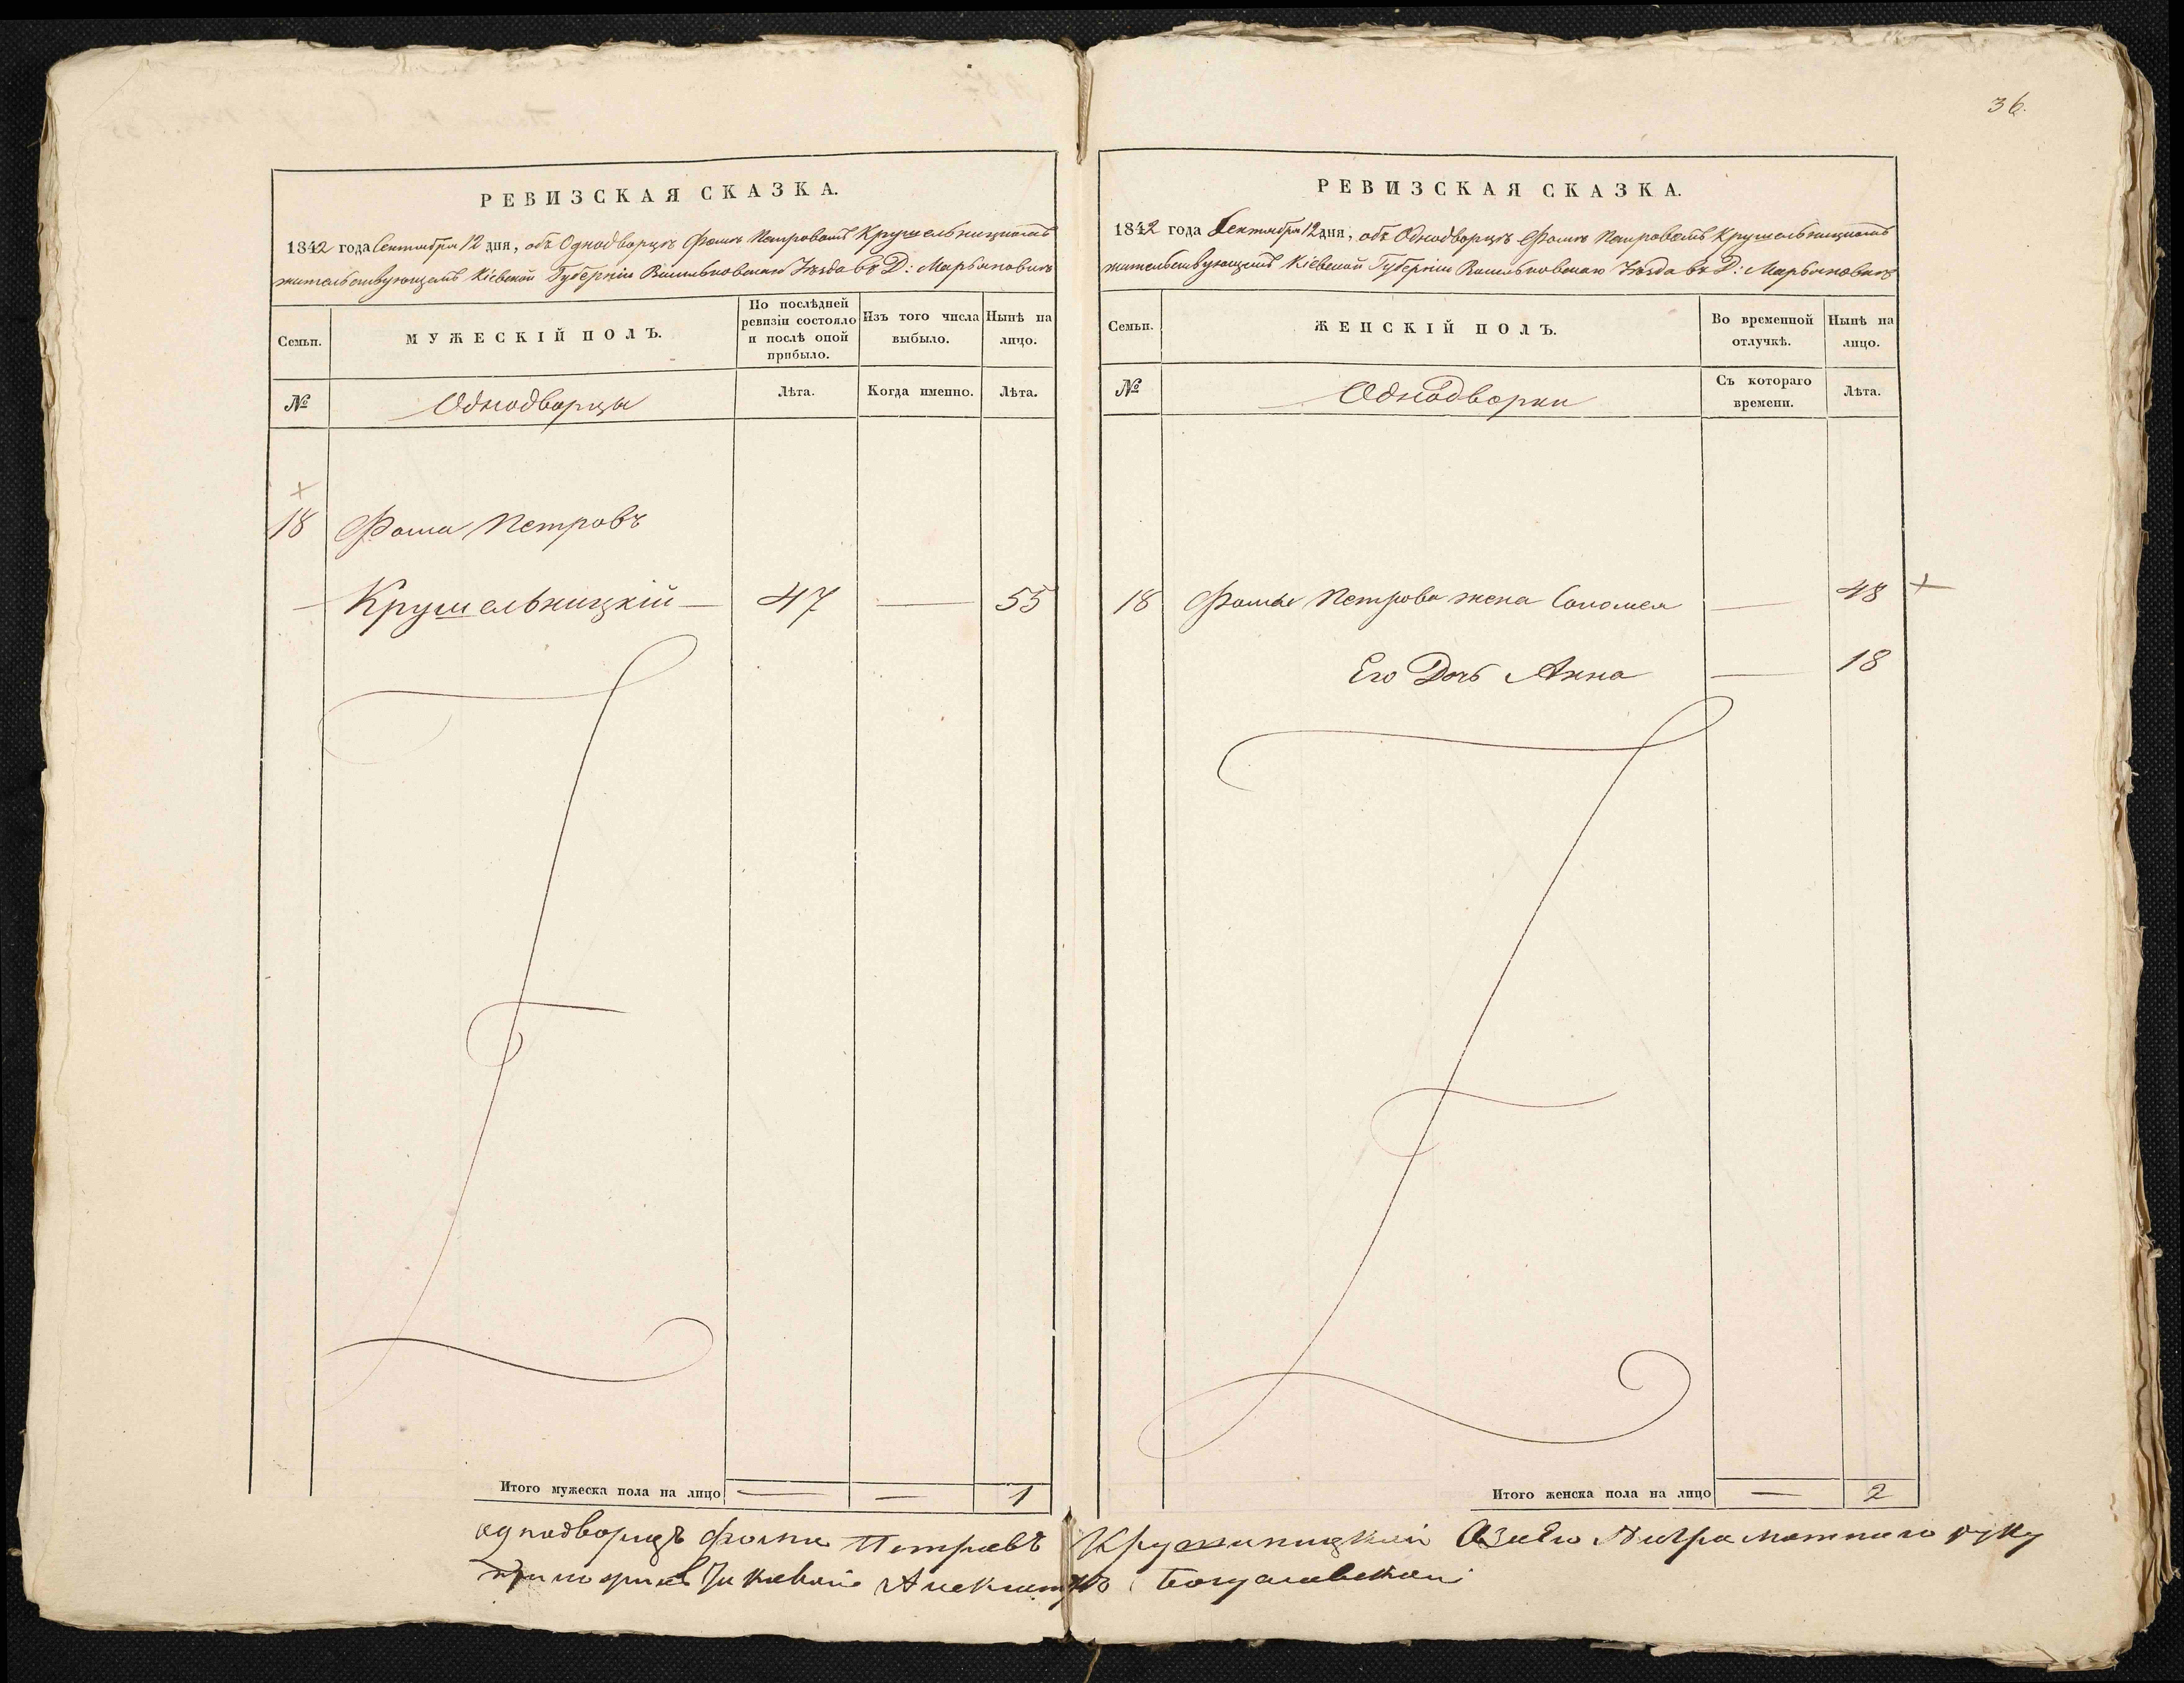 36.
РЕВИЗСКАЯ СКАЗКА.
1842 года Сентября 12 дня, объ Однодворцѣ Фомѣ Петровомъ Крушельницкомъ
жительствующемъ Кіевской Губерніи Васильковскаго Уѣзда въ Д: Марьяновкѣ
Семьи.
МУЖЕСКІЙ ПОЛЪ.
По послѣдней ревизіи состояло и послѣ оной прибыло.
Изъ того числа выбыло.
Нынѣ на лицо.
№
Однодворцы
Лѣта.
Когда именно.
Лѣта.
18 Фома Петровъ
— Крушельницкій — 47 — 55
Итого мужеска пола на лицо — — 1
РЕВИЗСКАЯ СКАЗКА.
1842 года Сентября 12 дня, объ Однодворцѣ Фомѣ Петровомъ Крушельницкомъ
жительствующемъ Кіевской Губерніи Васильковскаго Уѣзда въ Д: Марьяновкѣ
Семьи.
ЖЕНСКІЙ ПОЛЪ.
Во временной отлучкѣ.
Нынѣ на лицо.
№
Однодворки
Съ котораго времени.
Лѣта.
18 Фомы Петрова жена Соломея — 48
Его Дочь Анна — 18
Итого женска пола на лицо — 2
однодворецъ Фома Петровъ руку